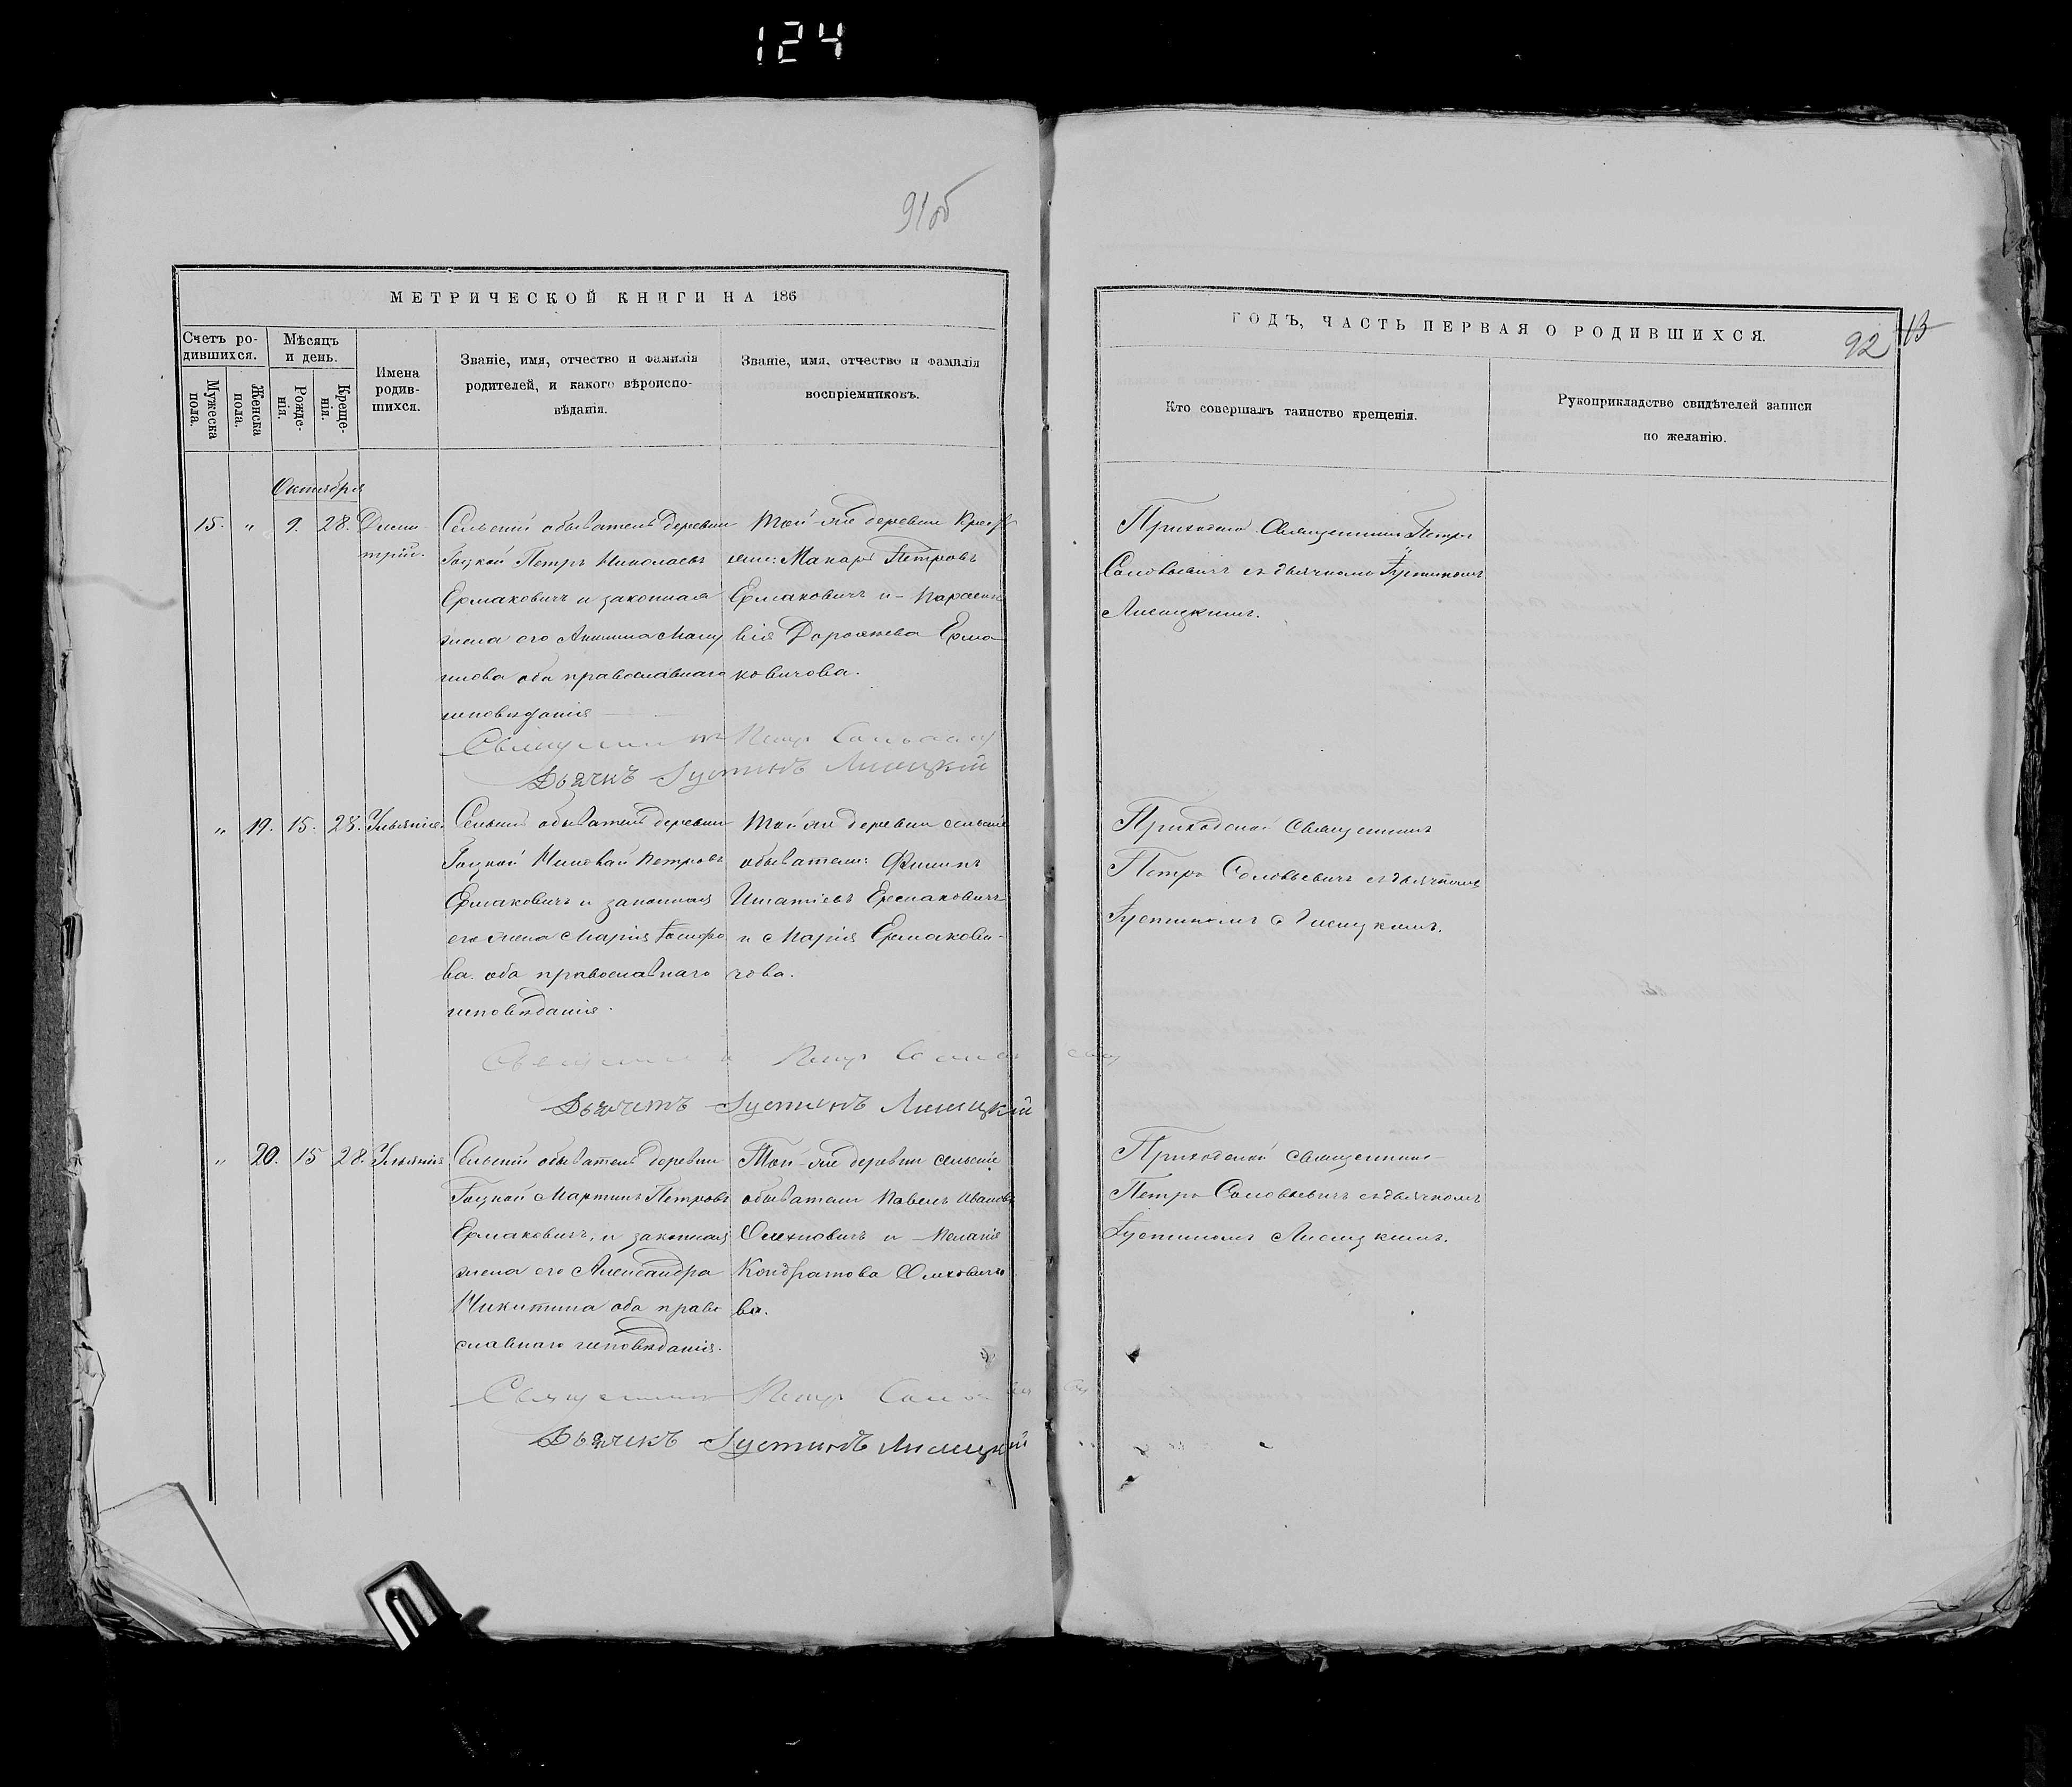 124
91об
МЕТРИЧЕСКОЙ КНИГИ НА 186
Счетъ ро-
дившихся.
Мужеска
пола.
Женска
пола.
Мѣсяцъ
и день.
Рожде-
нія.
Креще-
нія.
Имена
родив-
шихся.
Званіе, имя, отчество и фамилія
родителей, и какого вѣроиспо-
вѣданія.
Званіе, имя, отчество и фамилія
воспріемниковъ.
Октября
15. " 9. 28. Дими-
трій.
Сельскій обыватель деревни
Гоцкой Петръ Николаевъ
Ермаковичъ и законная
жена его
оба православнаго
исповѣданія
Той-же деревни
Макаръ Петровъ
Ермаковичъ и Параске
вія Ерма
ковичова.
Священникъ Петръ
Дьячкъ Іустинъ Лисицкій
" 19. 15. 28. Ульянія.
Сельскій обыватель деревни
Гоцкой Николай Петровъ
Ермаковичъ и законная
его жена Марія
ва. оба православнаго
исповѣданія.
Той же деревни сельскіе
обыватели: Филипъ
Игнатіевъ Ермаковичъ
и Марія Ермакови-
чова.
Петръ
Дьячекъ Іустинъ Лисицкій
" 20. 15 28. Ульянія
Сельскій обыватель деревни
Гоцкой Мартинъ Петровъ
Ермаковичъ, и законная
жена его Александра
Никитина оба право
славнаго исповѣданія.
Той-же деревни сельскіе
обыватели Павелъ Ивановъ
Олехновичъ и Меланія
Кондратова
ва.
Священникъ Петръ
Дьячекъ Іустинъ Лисицкій
ГОДЪ, ЧАСТЬ ПЕРВАЯ О РОДИВШИХСЯ.
92 13
Кто совершалъ таинство крещенія.
Рукоприкладство свидѣтелей записи
по желанію.
Приходской Священникъ Петръ
Соловьевичъ съ дьячкомъ Іустиномъ
Лисицкимъ.
Приходской Священникъ
Петръ Соловьевичъ съ дьячкомъ
Іустиномъ Лисицкимъ.
Приходской священникъ
Петръ Соловьевичъ съ дьячкомъ
Іустиномъ Лисицкимъ.